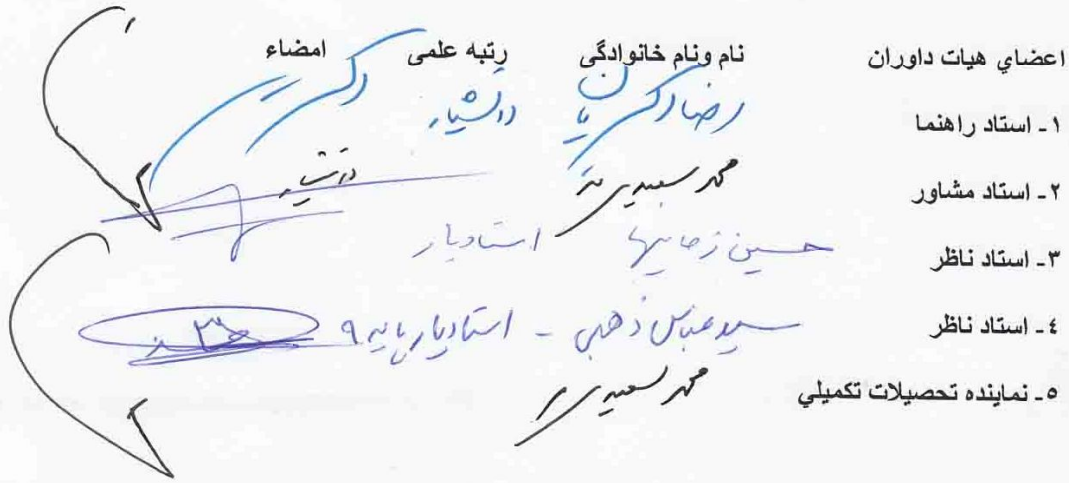 اعضاي هيات داوران نام ونام خانوادگی رتبه علمی امضاء
۱- استاد راهنما رضا اکبریان دانشیار
۲- استاد مشاور محمد سعیدی مهر دانشیار
۳- استاد ناظر حسین زمانیها استادیار
٤- استاد ناظر سیدعباس ذهبی - استادیار پایه ۹
٥- نماینده تحصیلات تکمیلي محمد سعیدی مهر